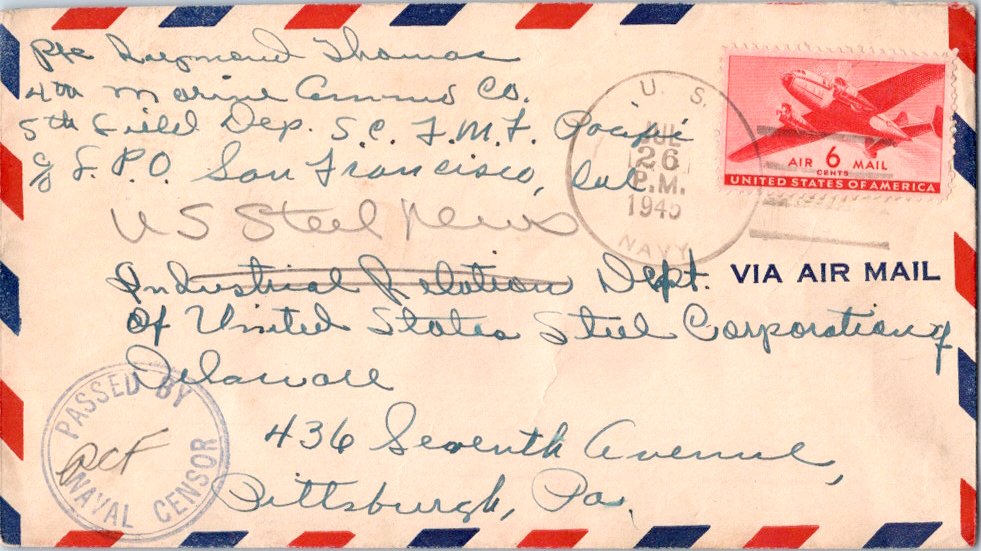 Pvt Raymond Thomas
4th Marine Ammo Co.
5th Field Dep. S.C. F.M.F. Pacific
c/o F.P.O. San Francisco, Cal
U.S.
JUL
26
P.M.
1945
NAVY
AIR 6 MAIL
CENTS
UNITED STATES OF AMERICA
US Steel News
VIA AIR MAIL
Industrial Relation Dept.
Of United States Steel Corporation of
Delaware
436 Seventh Avenue,
Pittsburgh, Pa.
PASSED BY
NAVAL CENSOR